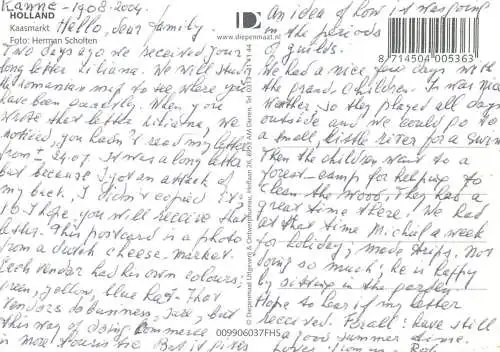 Kanne - 19-08-2009.
HOLLAND
Kaasmarkt
Foto: Herman Scholten
Hello, dear family.
Two days ago we received your
long letter Liliana. We will study
the Romanian map to see, where you
have been exactly. When you
wrote that letter Liliana, we
noticed, you hadn't read my letter
from ± 24-07. It was a long letter
but because I got an attack of
my back, I didn't copied
it. I hope, you will receive that
letter. This postcard is a photo
from a dutch cheese-market.
Each vendor had his own colours;
green, yellow, blue hat. That
vendors do business, rare, but
this way of doing commerce
is more touristic. But it gives
www.diepenmaat.nl
© Diepenmaat Uitgeverij & Ontwerpbureau
an idea of how it was
in the periods
of guilds.
8 714504 005363
We had a nice few days with
the grandchildren. It was nice
weather, so they played all day
outside and we could go to
a small, little river for a swim.
Then the children went to a
forest-camp for helping to
clean the wood. They had a
great time there! We had
at that time Michal a week
for holiday, made trips. Not
doing so much; he is happy
by sitting in the garden.
Hope to hear if my letter
received. For all: have still
a good summer time.
009906037FHS